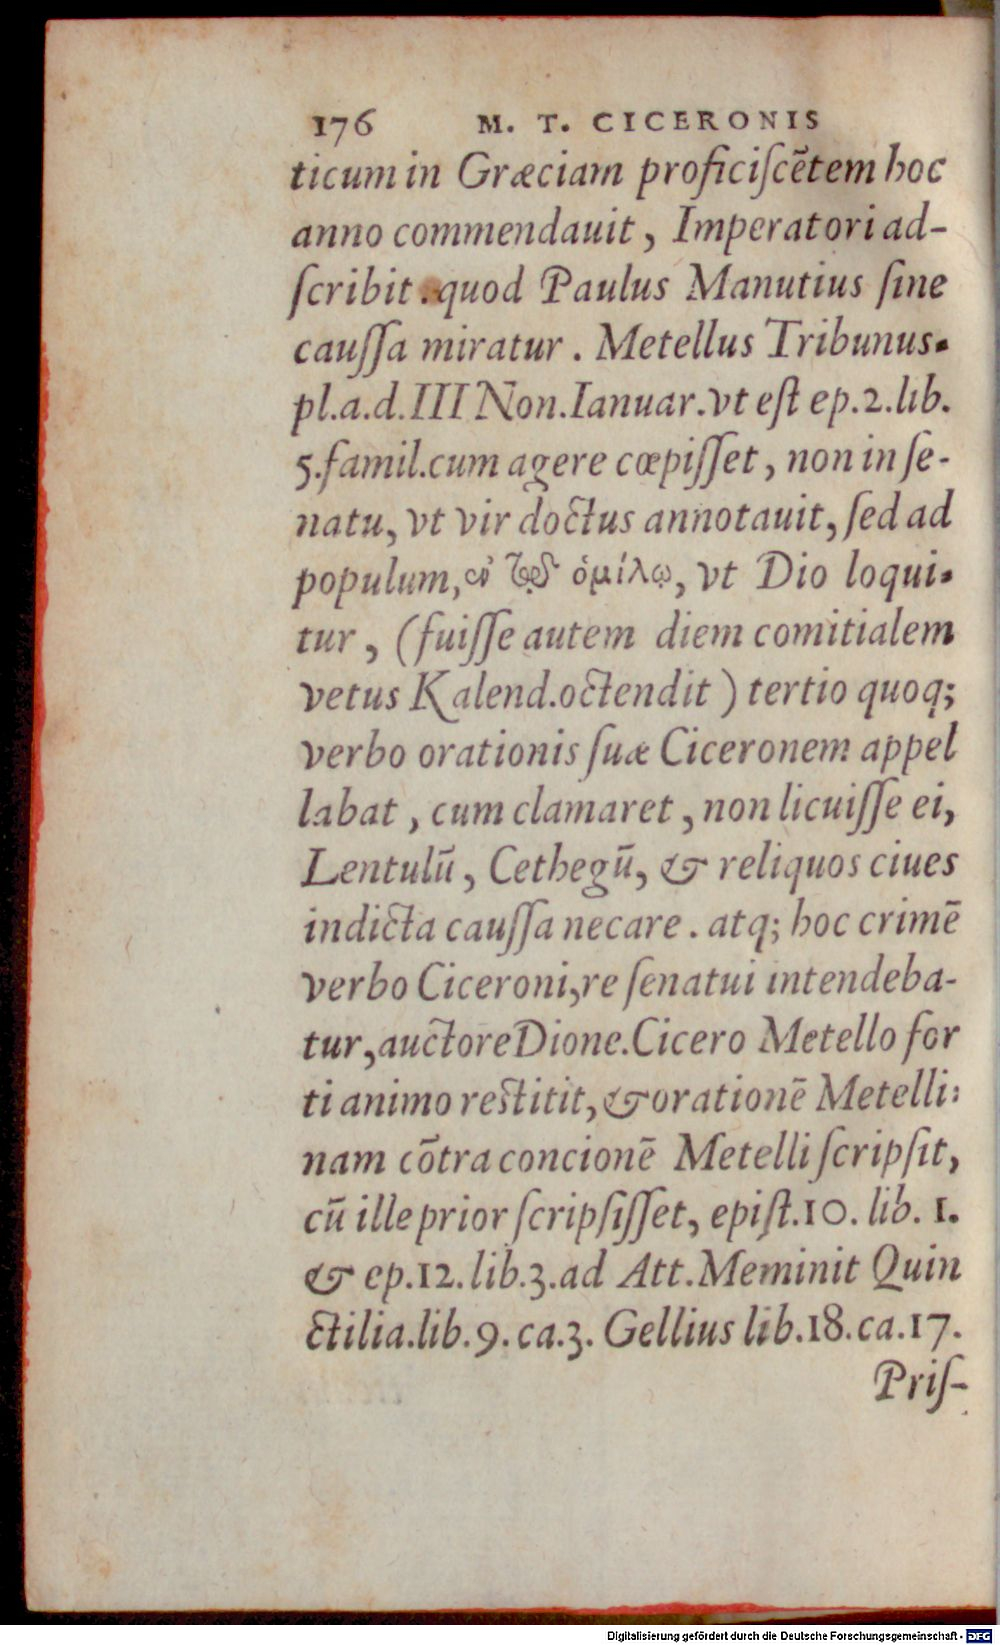 176 M. T. CICERONIS
ticum in Græciam proficiſcētem hoc
anno commendauit, Imperatori ad-
ſcribit. quod Paulus Manutius ſine
cauſſa miratur. Metellus Tribunus-
pl.a.d.III Non.Ianuar.vt eſt ep.2.lib.
5.famil.cum agere cœpiſſet, non in ſe-
natu, vt vir doctus annotauit, ſed ad
populum, ἐν τῷδε ὁμίλῳ, vt Dio loqui-
tur, (fuiſſe autem diem comitialem
vetus Kalend.octendit) tertio quoq;
verbo orationis ſuæ Ciceronem appel
labat, cum clamaret, non licuiſſe ei,
Lentulū, Cethegū, & reliquos ciues
indicta cauſſa necare. atq; hoc crimē
verbo Ciceroni, re ſenatui intendeba-
tur, auctore Dione. Cicero Metello for
ti animo reſtitit, & orationē Metelli:
nam cōtra concionē Metelli ſcripſit,
cū ille prior ſcripſiſſet, epiſt.10. lib. 1.
& ep.12.lib.3.ad Att. Meminit Quin
ctilia.lib.9.ca.3. Gellius lib.18.ca.17.
Priſ-
Digitalisierung gefördert durch die Deutsche Forschungsgemeinschaft - DFG